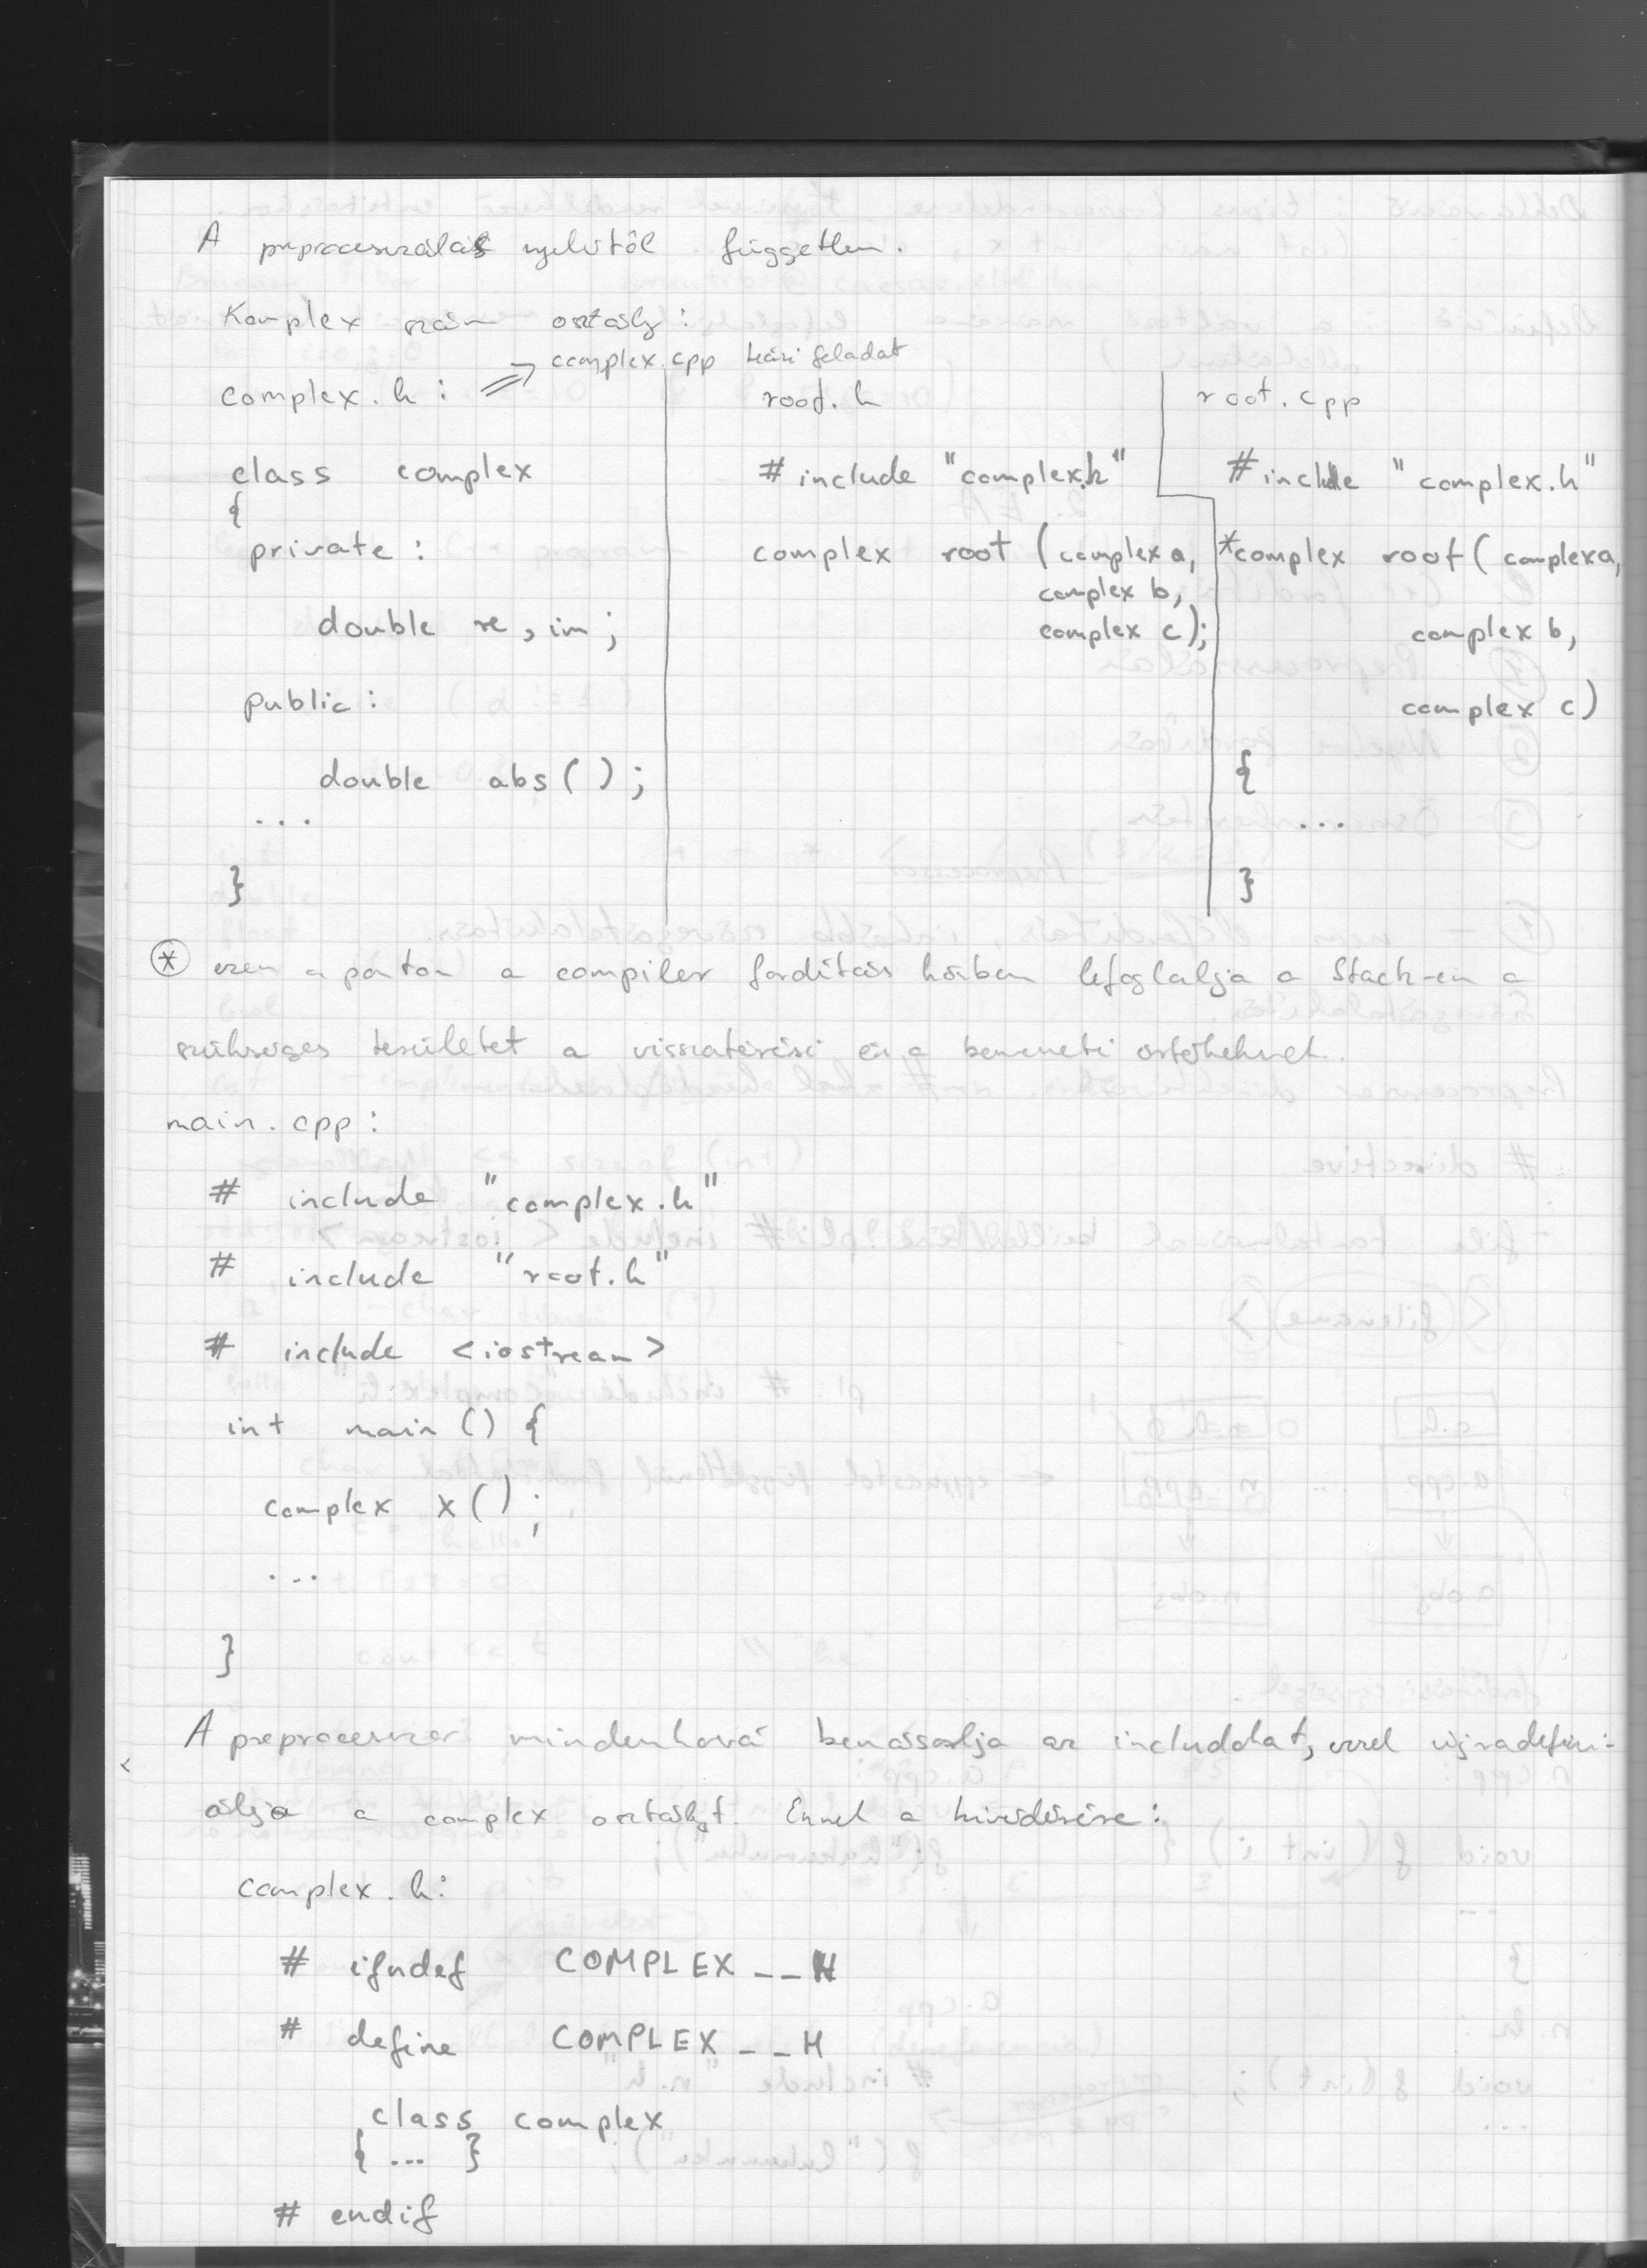 A preprocesszálás nyelvtől független.
Komplex szám osztály:
complex.h: ⇒ complex.cpp házi feladat
class complex
{
private:
double re, im;
public:
double abs();
...
}
root.h
# include "complex.h"
complex root (complex a,
complex b,
complex c);
root.cpp
# include "complex.h"
*complex root( complex a,
complex b,
complex c)
{
...
}
* ezen a ponton a compiler fordítás közben lefoglalja a Stack-en a
szükséges területet a visszatérési és a bemeneti értékeknek.
main.cpp:
# include "complex.h"
# include "root.h"
# include <iostream>
int main() {
complex x();
...
}
A preprocesszor mindenhová bemásolja az includolat, ezzel újradefini-
álja a complex osztályt. Ennek a kivédésére:
complex.h:
# ifndef COMPLEX__H
# define COMPLEX__H
class complex
{ ... }
# endif